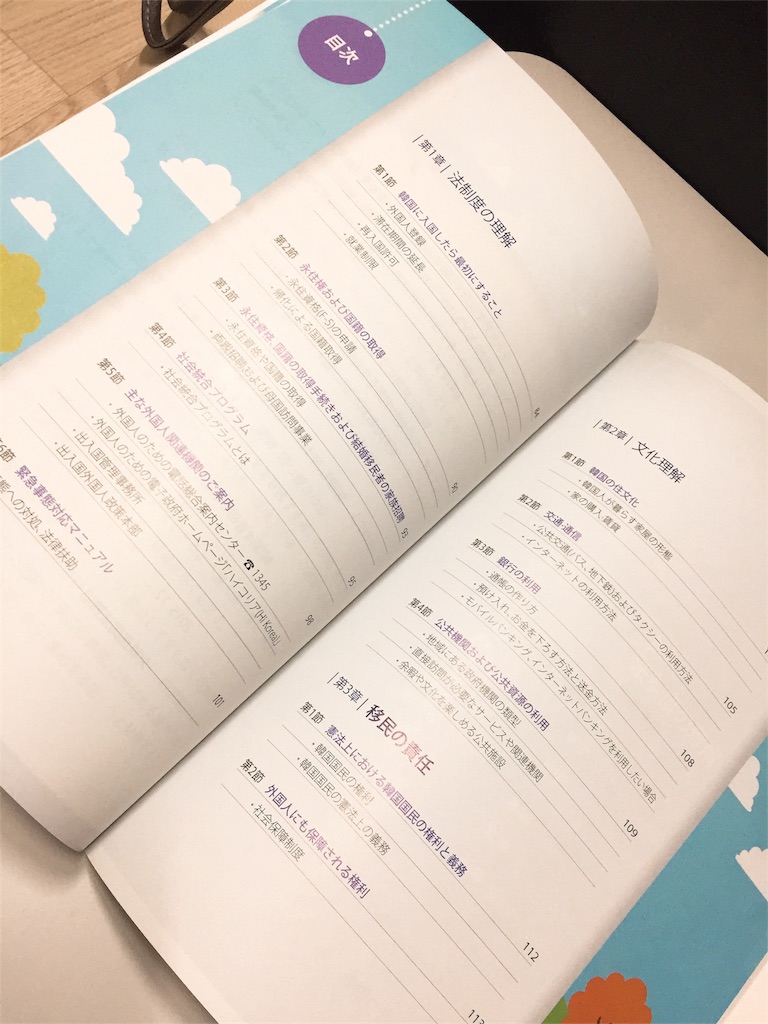 目次
|第1章| 法制度の理解
第1節 韓国に入国したら最初にすること
・外国人登録
・滞在期間の延長
・再入国許可
・就業制限
84
第2節 永住権および国籍の取得
・永住資格(F-5)の申請
・帰化による国籍取得
90
第3節 永住資格、国籍の取得手続きおよび結婚移民者の家族招聘
・永住資格や国籍の取得
・両親招聘および母国訪問事業
93
第4節 社会統合プログラム
・社会統合プログラムとは
95
第5節 主な外国人関連機関のご案内
・外国人のための電話総合案内センター ☎1345
・外国人のための電子政府ホームページ「ハイコリア(Hi Korea)」
・出入国管理事務所
・出入国外国人政策本部
98
節 緊急事態対応マニュアル
能への対処、法律扶助
101
|第2章| 文化理解
第1節 韓国の住文化
・韓国人が暮らす家屋の形態
・家の購入・賃貸
第2節 交通・通信
・公共交通(バス、地下鉄)およびタクシーの利用方法
・インターネットの利用方法
105
第3節 銀行の利用
・通帳の作り方
・預け入れ、お金を下ろす方法と送金方法
・モバイルバンキング、インターネットバンキングを利用したい場合
108
第4節 公共機関および公共資源の利用
・地域にある政府機関の類型
・直接訪問が必要なサービスや関連機関
・余暇や文化を楽しめる公共施設
109
|第3章| 移民の責任
第1節 憲法上における韓国国民の権利と義務
・韓国国民の権利
・韓国国民の憲法上の義務
112
第2節 外国人にも保障される権利
・社会保障制度
113